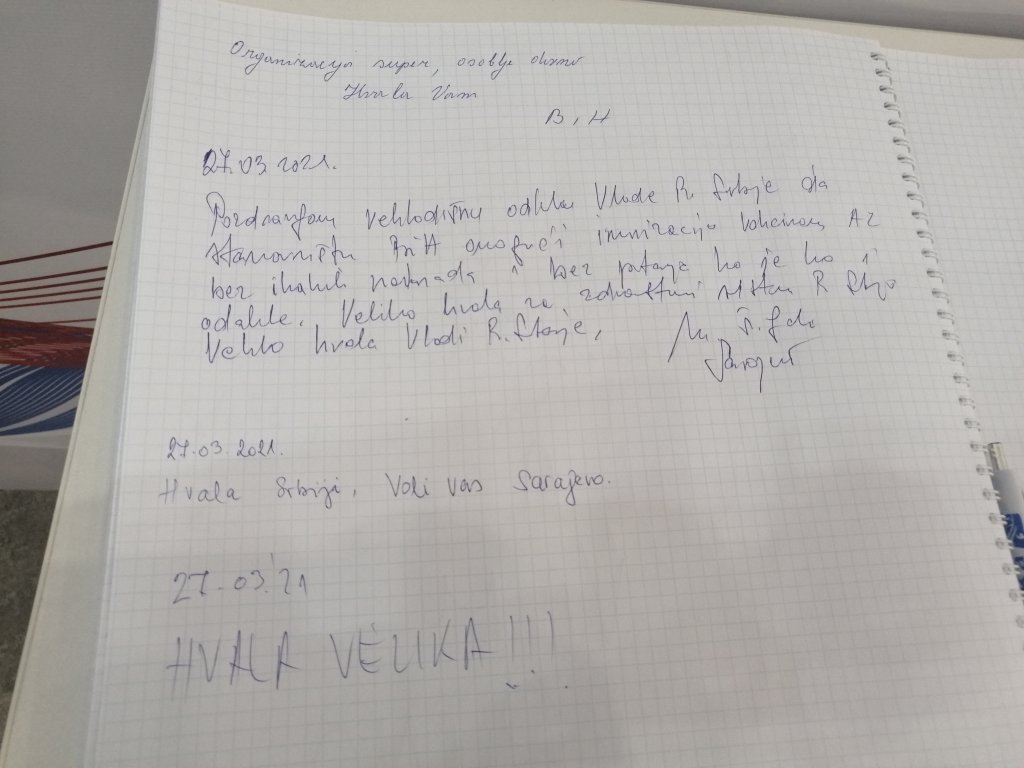 Organizacija super, osoblje divno
Hvala Vam
B, H
27.03 2021.
Pozdravljam odluku Vlade R. Srbije da
stanovništu BiH omogući imnizaciju vakcinom AZ
bez ikakvih naknada i bez pitanja ko je ko i
odakle. Veliko hvala za zdravstveni sistem R Srbije
Veliko hvala Vladi R. Srbije,
Sarajevo
27.03.2021.
Hvala Srbiji, Voli vas Sarajevo.
27.03.'21
HVALA VELIKA!!!